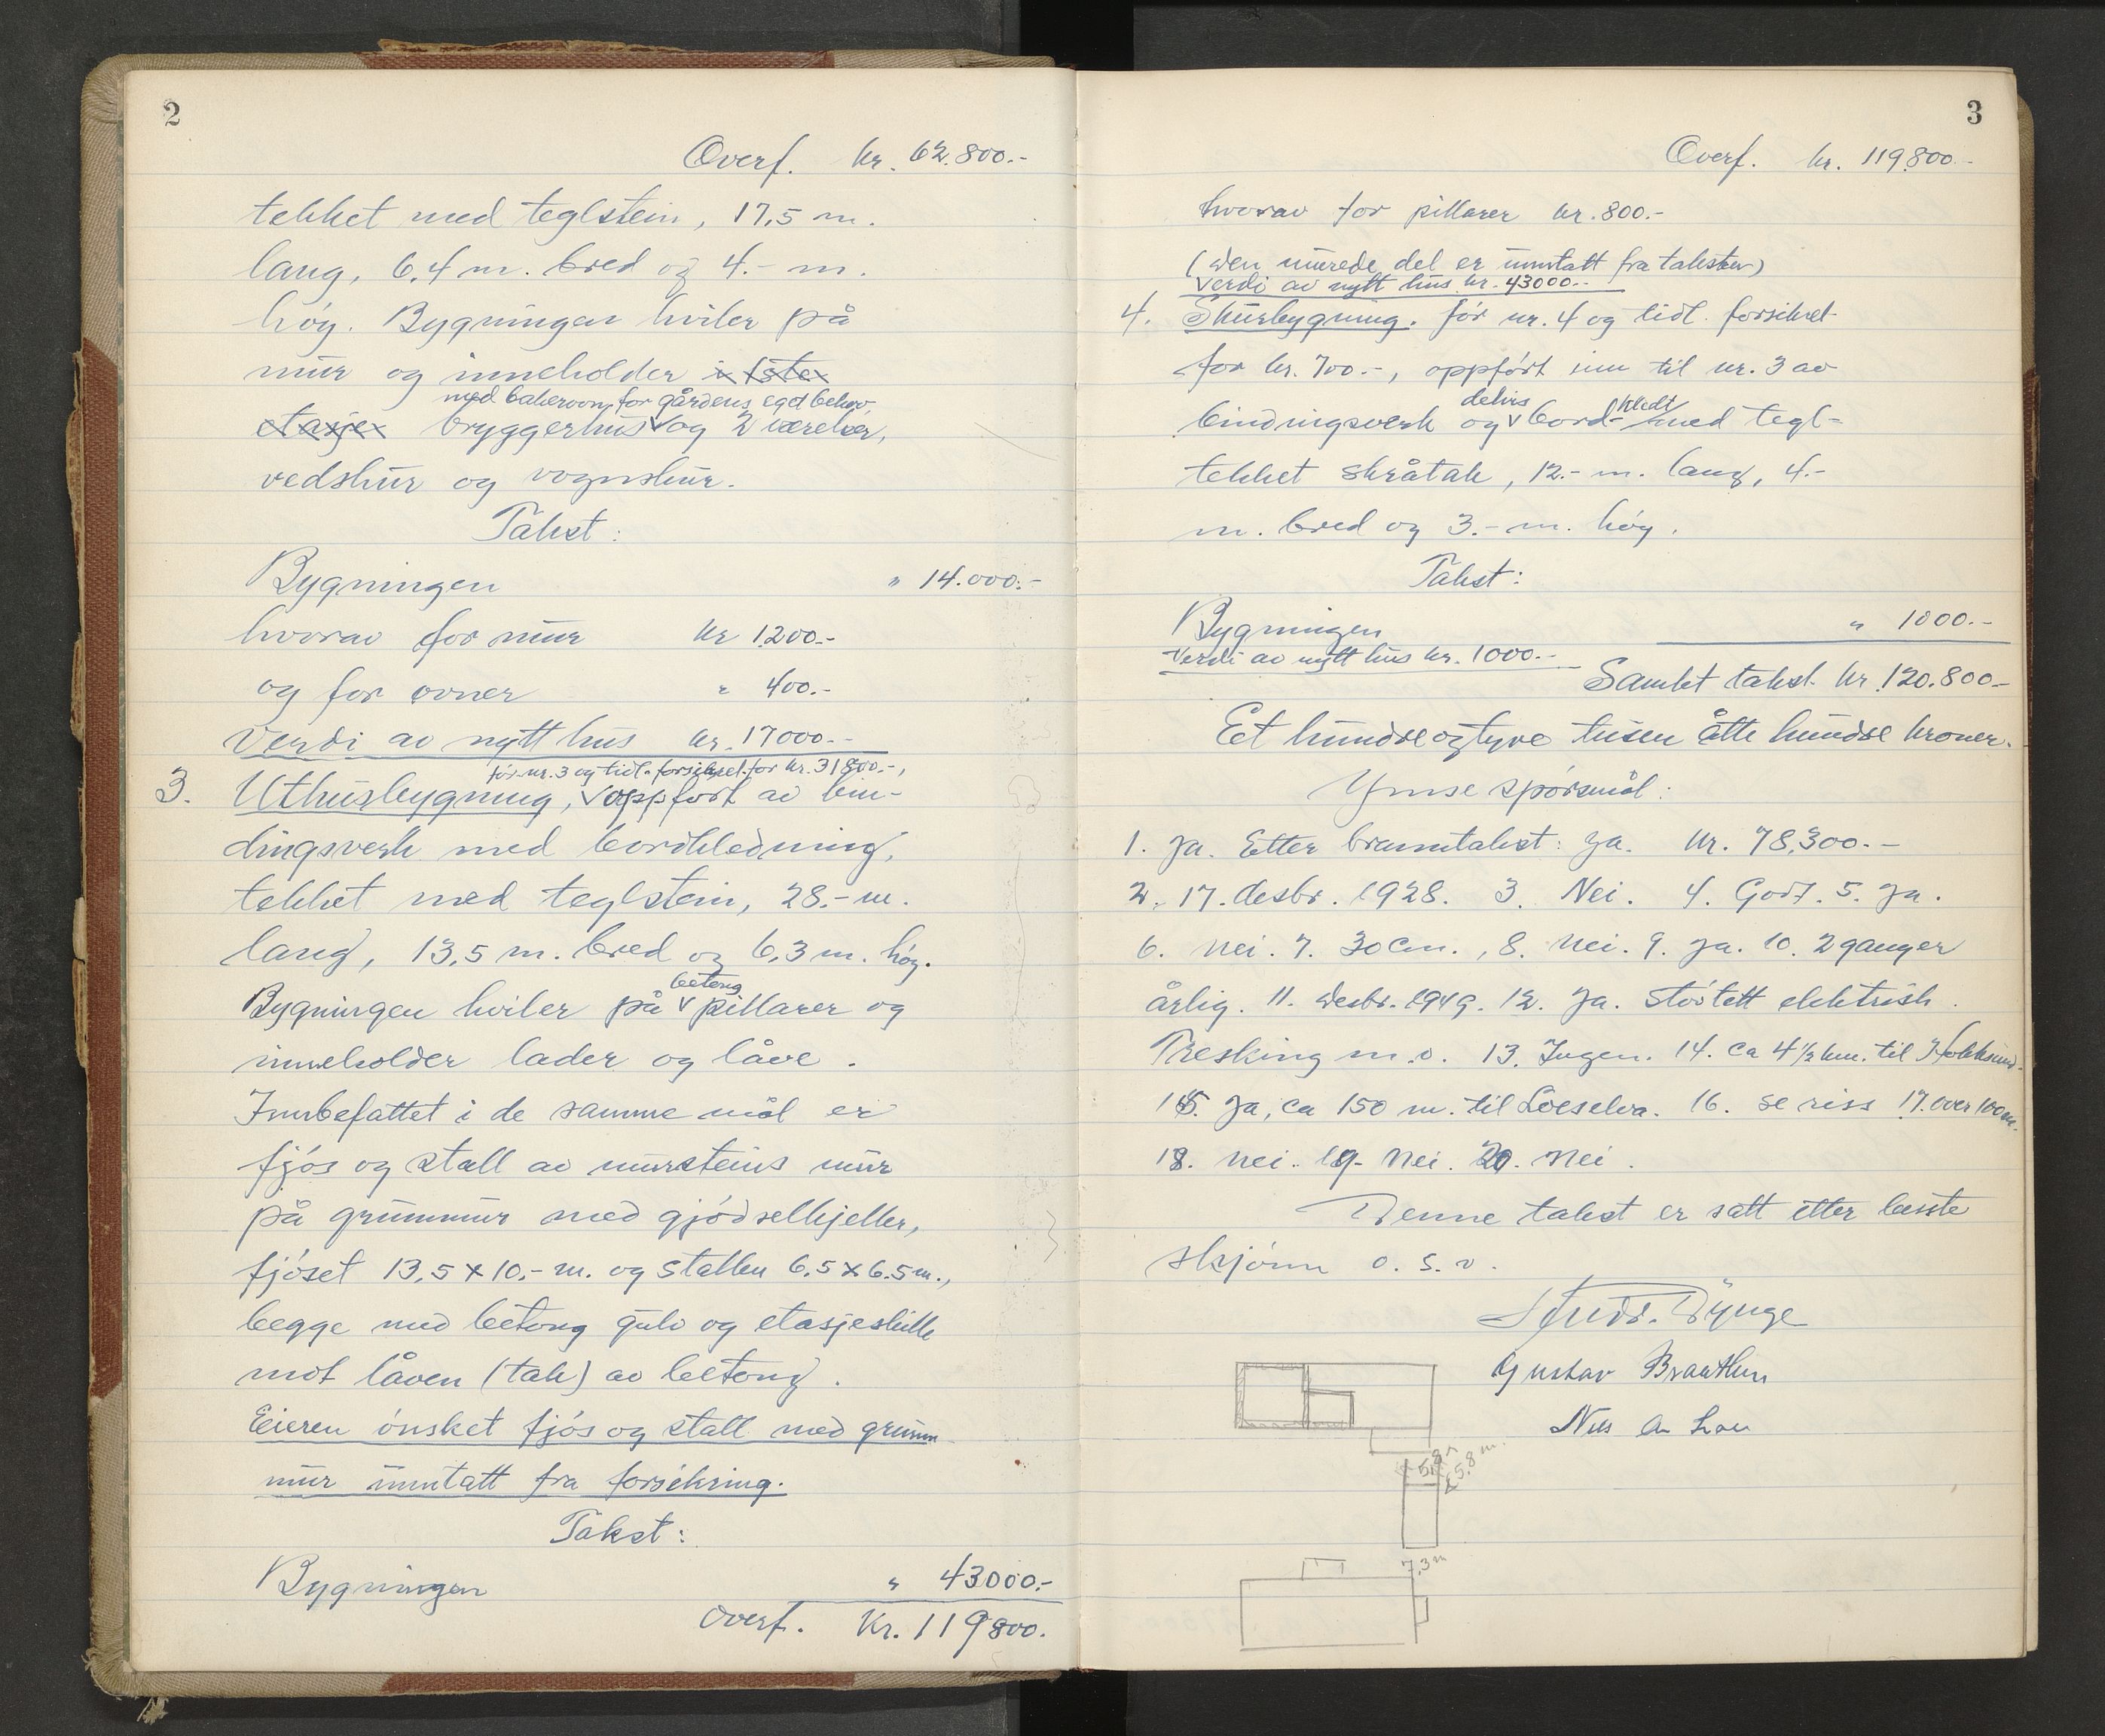 2
Overf. kr. 62.800.-
tekket med teglstein, 17,5 m.
lang, 6,4 m. bred og 4.- m.
høy. Bygningen hviler på
mur og inneholder i 1ste
med bakerovn for gårdens eget behov,
etasje bryggerhus og 2 værelser,
vedskur og vognskur.
Takst:
Bygningen " 14.000.-
hvorav for mur kr 1200.-
og for ovner " 400.-
Verdi av nytt hus kr. 17000.-
før nr. 3 og tidl. forsikret for kr. 31800.-,
3. Uthusbygning, oppført av bin-
dingsverk med bordkledning,
tekket med teglstein, 28.- m.
lang, 13,5 m. bred og 6,3 m. høy.
betong
Bygningen hviler på pillarer og
inneholder lader og låve.
Innbefattet i de samme mål er
fjøs og stall av mursteins mur
på grunnmur med gjødselkjeller,
fjøset 13,5 x 10,- m. og stallen 6,5 x 6.5 m.,
begge med betong gulv og etasjeskille
mot låven (tak) av betong.
Eieren ønsket fjøs og stall med grunn
mur unntatt fra forsikring.
Takst:
Bygningen " 43000.-
Overf. Kr. 119800.
3
Overf. kr. 119800.-
hvorav for pillarer kr. 800.-
(den murede del er unntatt fra taksten)
Verdi av nytt hus kr. 43000.-
4. Skurbygning. før nr. 4 og tidl. forsikret
for kr. 700.-, oppført inn til nr. 3 av
delvis kledt
bindingsverk og bord- med tegl-
tekket skråtak, 12.- m. lang, 4.-
m. bred og 3.- m. høy.
Takst:
Bygningen " 1000.-
Verdi av nytt hus kr. 1000.-
Samlet takst kr. 120.800-
Et hundreogtyve tusen åtte hundre kroner.
Ymse spørsmål:
1. Ja. Etter branntakst: Ja. kr. 78,300.-
2. 17. desbr. 1928. 3. Nei. 4. Godt. 5. Ja.
6. Nei. 7. 30 cm., 8. Nei. 9. Ja. 10. 2 ganger
årlig. 11. Desbr. 1949. 12. Ja. Støtett elektrisk.
Tresking m.v. 13. Ingen. 14. ca 4 1/2 km. til Hokksund.
15. Ja, ca 150 m. til Loeselva. 16. se riss 17. over 100 m.
18. Nei. 19. Nei. 20. Nei.
Denne takst er satt etter beste
skjønn o. s. v.
Gustav Braathen
Nils
5,8 m
5.8 m.
7,3 m